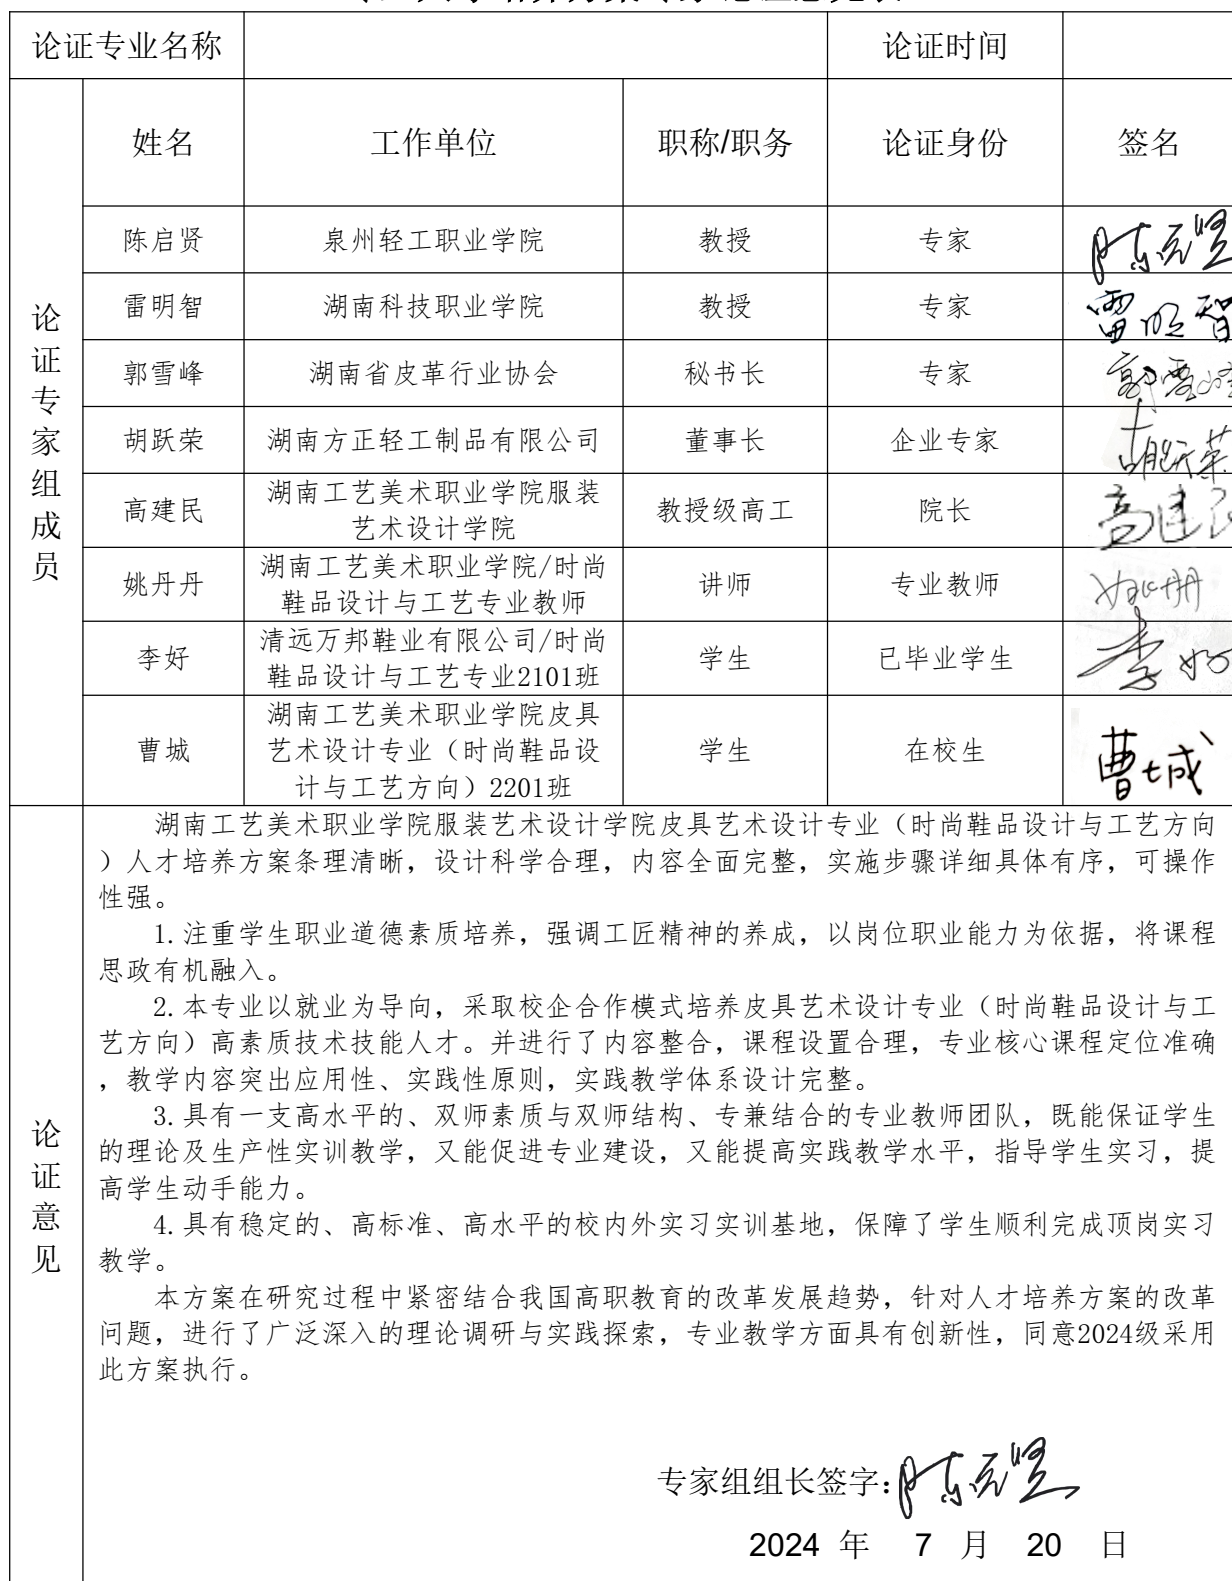 论证专业名称 论证时间
论证专家组成员
姓名 工作单位 职称/职务 论证身份 签名
陈启贤 泉州轻工职业学院 教授 专家 陈启贤
雷明智 湖南科技职业学院 教授 专家 雷明智
郭雪峰 湖南省皮革行业协会 秘书长 专家 郭雪峰
胡跃荣 湖南方正轻工制品有限公司 董事长 企业专家 胡跃荣
高建民 湖南工艺美术职业学院服装
艺术设计学院 教授级高工 院长 高建民
姚丹丹 湖南工艺美术职业学院/时尚
鞋品设计与工艺专业教师 讲师 专业教师 姚丹丹
李好 清远万邦鞋业有限公司/时尚
鞋品设计与工艺专业2101班 学生 已毕业学生 李好
曹城 湖南工艺美术职业学院皮具
艺术设计专业（时尚鞋品设
计与工艺方向）2201班 学生 在校生 曹城
论证意见
湖南工艺美术职业学院服装艺术设计学院皮具艺术设计专业（时尚鞋品设计与工艺方向
）人才培养方案条理清晰，设计科学合理，内容全面完整，实施步骤详细具体有序，可操作
性强。
1.注重学生职业道德素质培养，强调工匠精神的养成，以岗位职业能力为依据，将课程
思政有机融入。
2.本专业以就业为导向，采取校企合作模式培养皮具艺术设计专业（时尚鞋品设计与工
艺方向）高素质技术技能人才。并进行了内容整合，课程设置合理，专业核心课程定位准确
，教学内容突出应用性、实践性原则，实践教学体系设计完整。
3.具有一支高水平的、双师素质与双师结构、专兼结合的专业教师团队，既能保证学生
的理论及生产性实训教学，又能促进专业建设，又能提高实践教学水平，指导学生实习，提
高学生动手能力。
4.具有稳定的、高标准、高水平的校内外实习实训基地，保障了学生顺利完成顶岗实习
教学。
本方案在研究过程中紧密结合我国高职教育的改革发展趋势，针对人才培养方案的改革
问题，进行了广泛深入的理论调研与实践探索，专业教学方面具有创新性，同意2024级采用
此方案执行。
专家组组长签字：陈启贤
2024 年 7 月 20 日